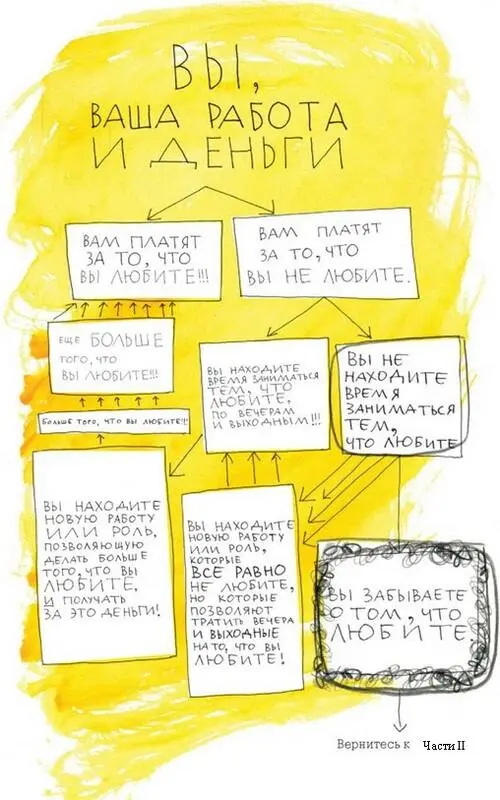 ВЫ,
ВАША РАБОТА
И ДЕНЬГИ
ВАМ ПЛАТЯТ
ЗА ТО, ЧТО
ВЫ ЛЮБИТЕ!!!
ВАМ ПЛАТЯТ
ЗА ТО, ЧТО
ВЫ НЕ ЛЮБИТЕ.
ЕЩЕ БОЛЬШЕ
ТОГО, ЧТО
ВЫ ЛЮБИТЕ!!!
БОЛЬШЕ ТОГО, ЧТО ВЫ ЛЮБИТЕ!!!
ВЫ НАХОДИТЕ
ВРЕМЯ ЗАНИМАТЬСЯ
ТЕМ, ЧТО
ЛЮБИТЕ,
ПО ВЕЧЕРАМ
И ВЫХОДНЫМ!!!
ВЫ НЕ
НАХОДИТЕ
ВРЕМЯ
ЗАНИМАТЬСЯ
ТЕМ,
ЧТО ЛЮБИТЕ
ВЫ НАХОДИТЕ
НОВУЮ РАБОТУ
ИЛИ РОЛЬ,
ПОЗВОЛЯЮЩУЮ
ДЕЛАТЬ БОЛЬШЕ
ТОГО, ЧТО ВЫ
ЛЮБИТЕ,
И ПОЛУЧАТЬ
ЗА ЭТО ДЕНЬГИ!
ВЫ НАХОДИТЕ
НОВУЮ РАБОТУ
ИЛИ РОЛЬ,
КОТОРЫЕ
ВСЕ РАВНО
НЕ ЛЮБИТЕ,
НО КОТОРЫЕ
ПОЗВОЛЯЮТ
ТРАТИТЬ ВЕЧЕРА
И ВЫХОДНЫЕ
НА ТО, ЧТО ВЫ
ЛЮБИТЕ!
ВЫ ЗАБЫВАЕТЕ
О ТОМ, ЧТО
ЛЮБИТЕ.
Вернитесь к Части II